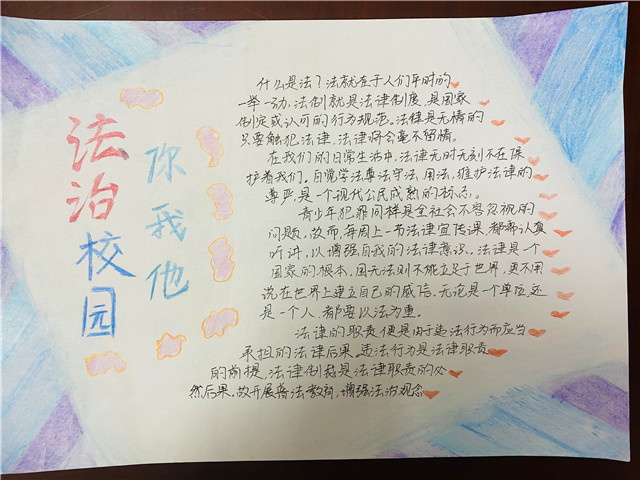 法治校园
你我他
什么是法？法就在于人们平时的
一举一动，法制就是法律制度，是国家
制定或认可的行为规范。法律是无情的
只要触犯法律，法律将会毫不留情。
在我们的日常生活中，法律无时无刻不在保
护着我们。自觉学法尊法守法，用法，维护法律的
尊严，是一个现代公民成熟的标志。
青少年犯罪同样是全社会不容忽视的
问题，故而，每周上一节法律宣传课，都需认真
听讲，以增强自我的法律意识。法律是一个
国家的根本，国无法则不能立足于世界，更不用
说在世界上建立自己的威信，无论是一个单位，还
是一个人，都要以法为重。
法律的职责便是由于违法行为而应当
承担的法律后果，违法行为是法律职责
的前提，法律制裁是法律职责的必
然后果。故开展普法教育，增强法治观念